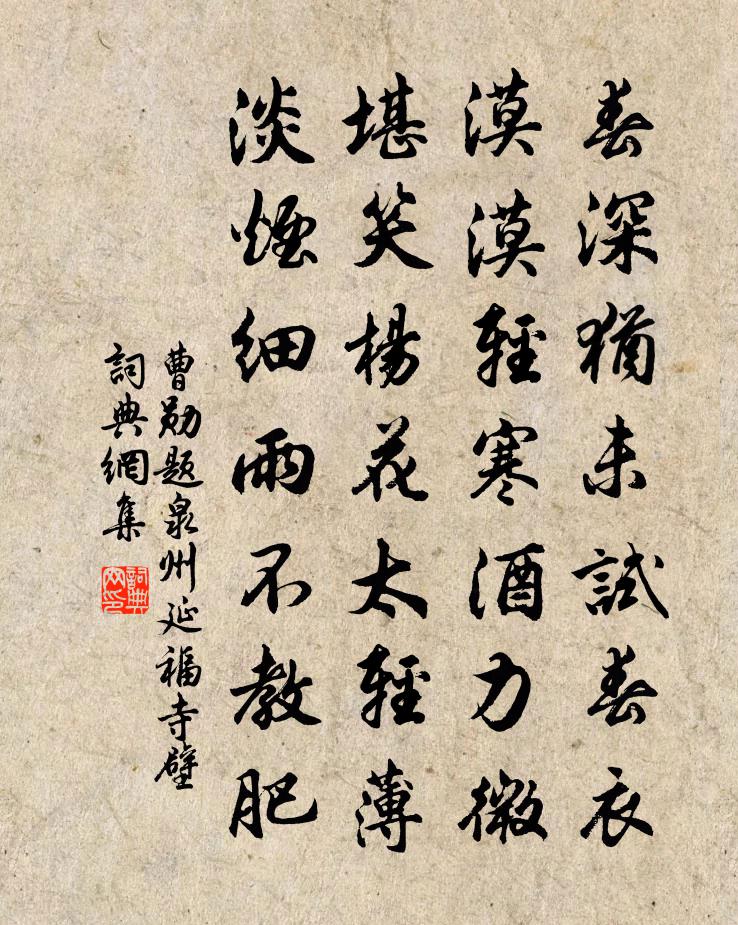 春深猶未試春衣
漠漠輕寒酒力微
堪笑楊花太輕薄
淡煙細雨不教肥
曹勛題泉州延福寺壁
詞典網集
詞典
网印